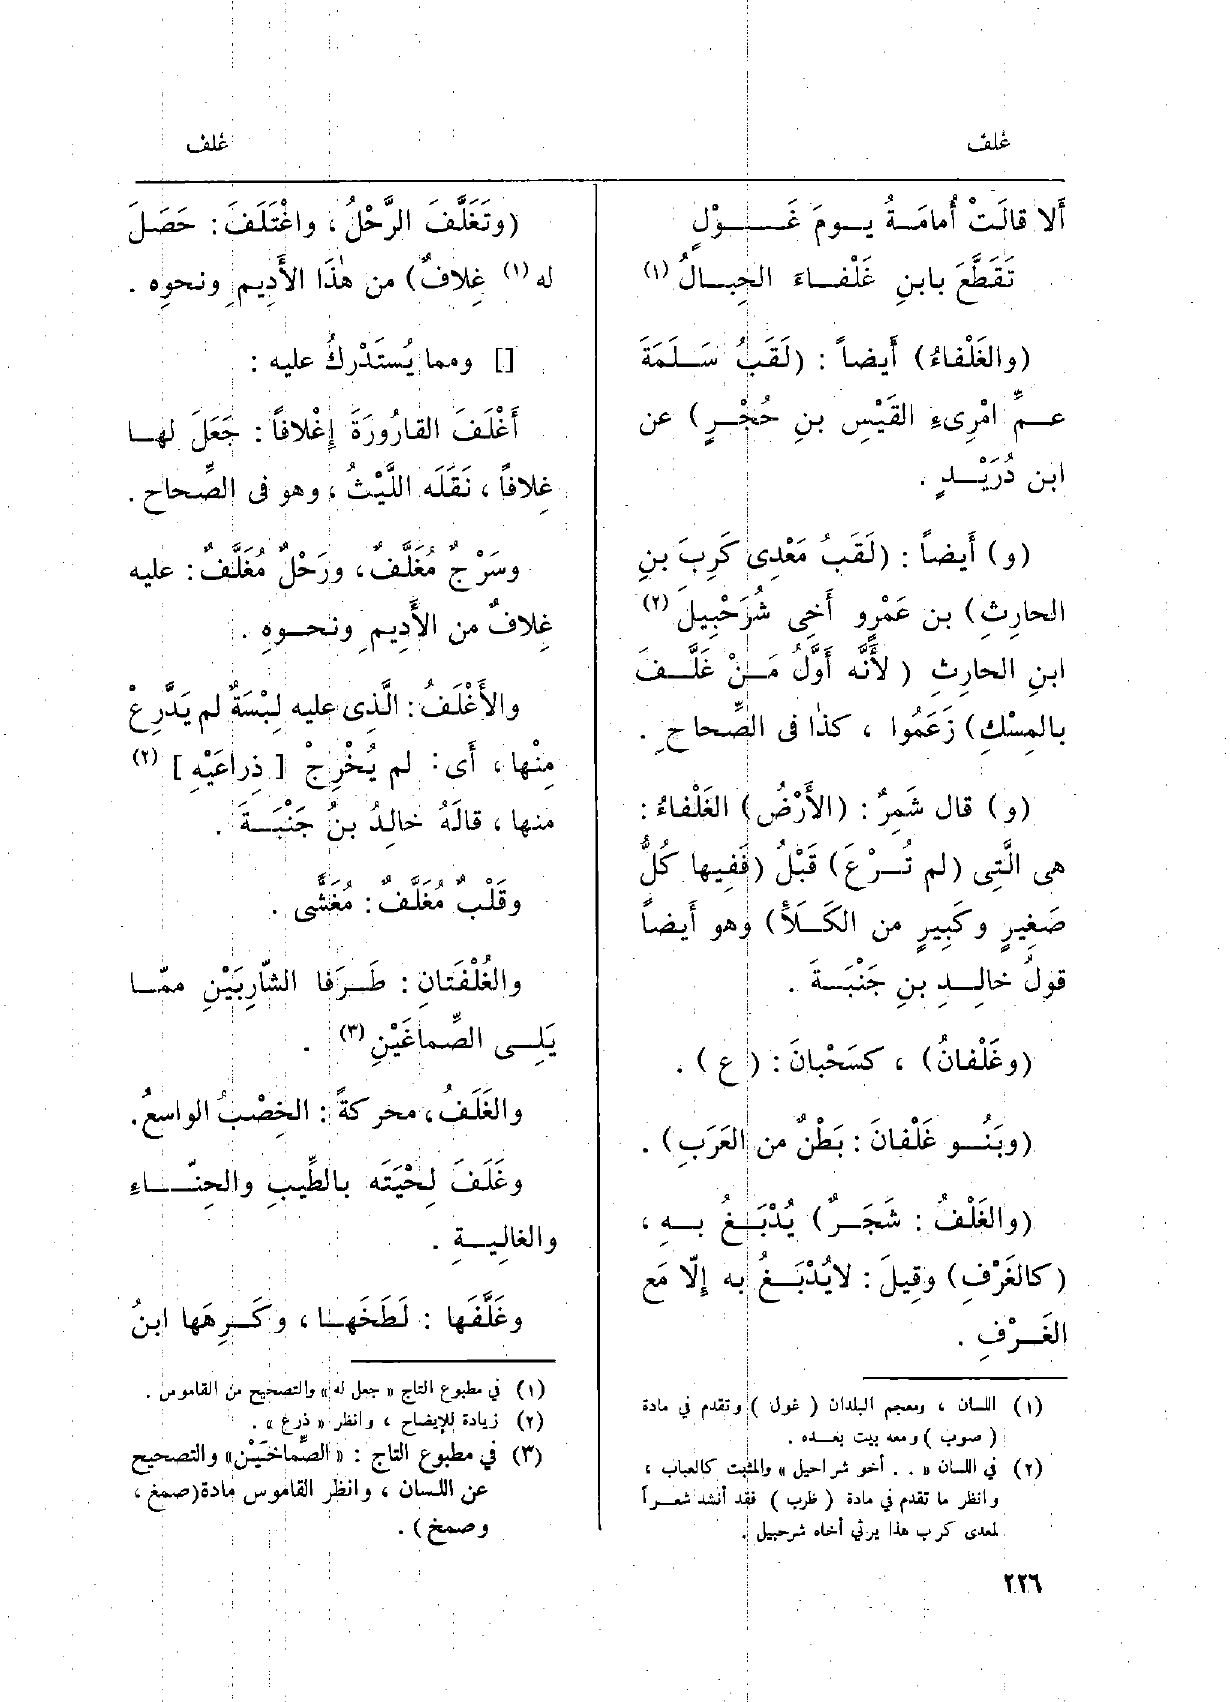 غلف
غلف
أَلا قالَتْ أُمامَةُ يومَ غَوْلٍ
تَقَطَّعَ بابنِ غَلْفاءَ الحِبالُ (١)
(والغَلْفاءُ) أَيضاً : (لَقَبُ سَلَمَةَ
عمِّ امْرِىءِ القَيْسِ بنِ حُجْرٍ) عن
ابن دُرَيْدٍ .
(و) أَيضاً : (لَقَبُ مَعْدِى كَرِبَ بنِ
الحارِثِ) بن عَمْرٍو أَخِى شُرَحْبِيلَ (٢)
ابنِ الحارِثِ ( لأَنَّه أَوَّلُ مَنْ غَلَّفَ
بالمِسْكِ) زَعَمُوا ، كذا فى الصِّحاحِ .
(و) قال شَمِرٌ : (الأَرْضُ) الغَلْفاءُ :
هى الَّتِى (لم تُرْعَ) قَبْلُ (فَفِيها كُلُّ
صَغِيرٍ وكَبِيرٍ من الكَلَأِ) وهو أَيضاً
قولُ خالِدِ بنِ جَنْبَةَ .
(وغَلْفانُ) ، كسَحْبانَ : ( ع ) .
(وبَنُو غَلْفانَ : بَطْنٌ من العَرَبِ) .
(والغَلْفُ : شَجَرٌ) يُدْبَغُ بهِ ،
(كالغَرْفِ) وقِيلَ : لايُدْبَغُ به إِلّا مَع
الغَرْفِ .
(١) اللسان ، ومعجم البلدان ( غول ) وتقدم في مادة
( صوب ) ومعه بيت بعده .
(٢) في اللسان « . . أخو شراحيل » والمثبت كالعباب ،
وانظر ما تقدم في مادة ( ظرب ) فقد أنشد شعراً
لمعدى كرب هذا يرثي أخاه شرحبيل .
٢٢٦
(وتَغَلَّفَ الرَّحْلُ ، واغْتَلَفَ : حَصَلَ
له (١) غِلافٌ) من هٰذَا الأَدِيمِ ونحوِه .
[] ومما يُستَدْركُ عليه :
أَغْلَفَ القارُورَةَ إِغْلافاً : جَعَلَ لها
غِلافاً ، نَقَلَه اللَّيْثُ ، وهو فى الصِّحاح .
وسَرْجٌ مُغَلَّفٌ ، ورَحْلٌ مُغَلَّفٌ : عليه
غِلافٌ من الأَدِيمِ ونحوِهِ .
والأَغْلَفُ : الَّذِى عليه لِبْسَةٌ لم يَدَّرِعْ
مِنْها ، أَى : لم يُخْرِجْ [ ذِراعَيْهِ ] (٢)
منها ، قالَهُ خالِدُ بنُ جَنْبَةَ .
وقَلْبٌ مُغَلَّفٌ : مُغَشًّى .
والغُلْفَتانِ : طَرَفا الشّارِبَيْنِ ممّا
يَلِى الصِّماغَيْنِ (٣) .
والغَلَفُ ، محركةً : الخِصْبُ الواسعُ.
وغَلَفَ لِحْيَتَه بالطِّيبِ والحِنّاءِ
والغالِيةِ .
وغَلَّفَها : لَطَخَها ، وكَرِهَها ابنُ
(١) في مطبوع التاج « جعل له » والتصحيح من القاموس .
(٢) زيادة للإيضاح ، وانظر « ذرع » .
(٣) في مطبوع التاج : « الصِّماخَيْن» والتصحيح
عن اللسان ، وانظر القاموس مادة(صمغ ،
وصمخ) .